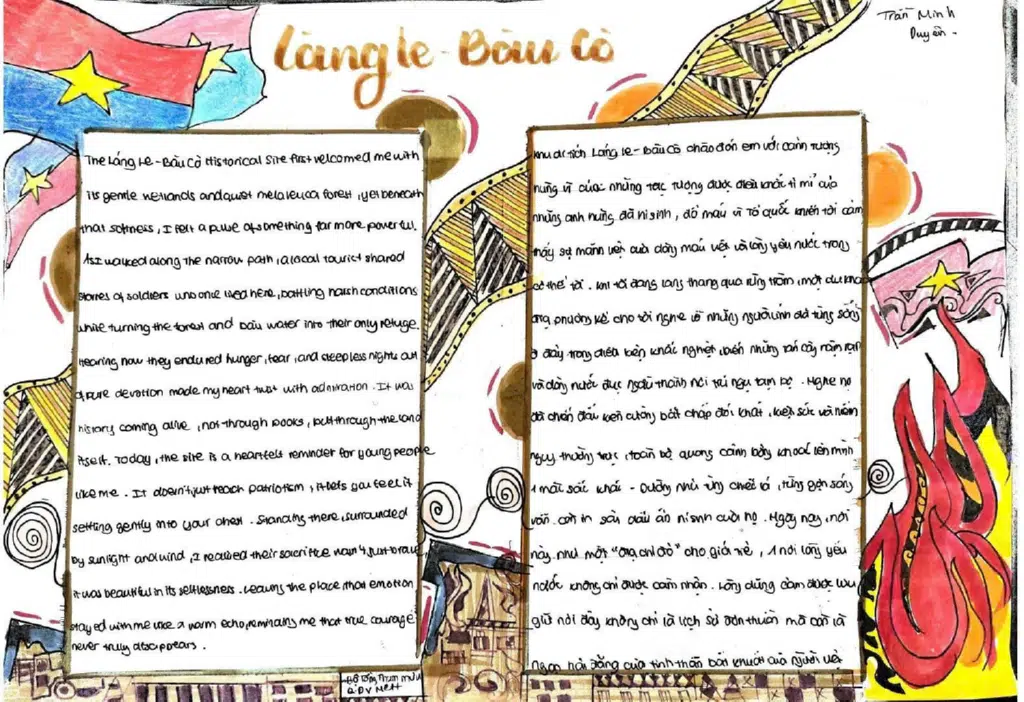 Láng le - Bàu Cò
Trần Minh
Duyên -
The Láng Le - Bàu Cò Historical Site first welcomed me with
its gentle wetlands and quiet melaleuca forest, yet beneath
that softness, I felt a pulse of something far more powerful.
As I walked along the narrow path, a local tourist shared
stories of soldiers who once lived here, battling harsh conditions
while turning the forest and bàu water into their only refuge.
Hearing how they endured hunger, fear, and sleepless nights out
of pure devotion made my heart twist with admiration. It was
history coming alive, not through books, but through the land
itself. Today, the site is a heartfelt reminder for young people
like me. It doesn't just teach patriotism, it lets you feel it
settling gently into your chest. Standing there, surrounded
by sunlight and wind, I realized their sacrifice wasn't just brave
it was beautiful in its selflessness. Leaving the place, that emotion
stayed with me like a warm echo, reminding me that true courage
never truly disappears.
Khu di tích Láng le - Bàu Cò chào đón em với cảnh tượng
hùng vĩ của những bức tượng được điêu khắc tỉ mỉ của
những anh hùng đã hi sinh, đổ máu vì Tổ quốc khiến tôi cảm
thấy sự mãnh liệt của dòng máu việt và lòng yêu nước trong
cơ thể tôi. Khi tôi đang lang thang qua rừng tràm, một du khách
địa phương kể cho tôi nghe về những người lính đã từng sống
ở đây trong điều kiện khắc nghiệt, biến những tán cây rậm rạp
và dòng nước đục ngầu thành nơi trú ngụ tạm bợ. Nghe họ
đã chiến đấu kiên cường bất chấp đói khát, kiệt sức và hiểm
nguy thường trực, toàn bộ quang cảnh bỗng khoác lên mình
1 màu sắc khác - Dường như từng chiếc lá, từng gợn sóng
vẫn còn in sâu dấu ấn hi sinh của họ. Ngày nay, nơi
này như một "địa chỉ đỏ" cho giới trẻ, 1 nơi lòng yêu
nước không chỉ được cảm nhận. Lòng dũng cảm được lưu
giữ nơi đây không chỉ là lịch sử đơn thuần mà còn là
ngọn hải đăng của tinh thần bất khuất của người Việt